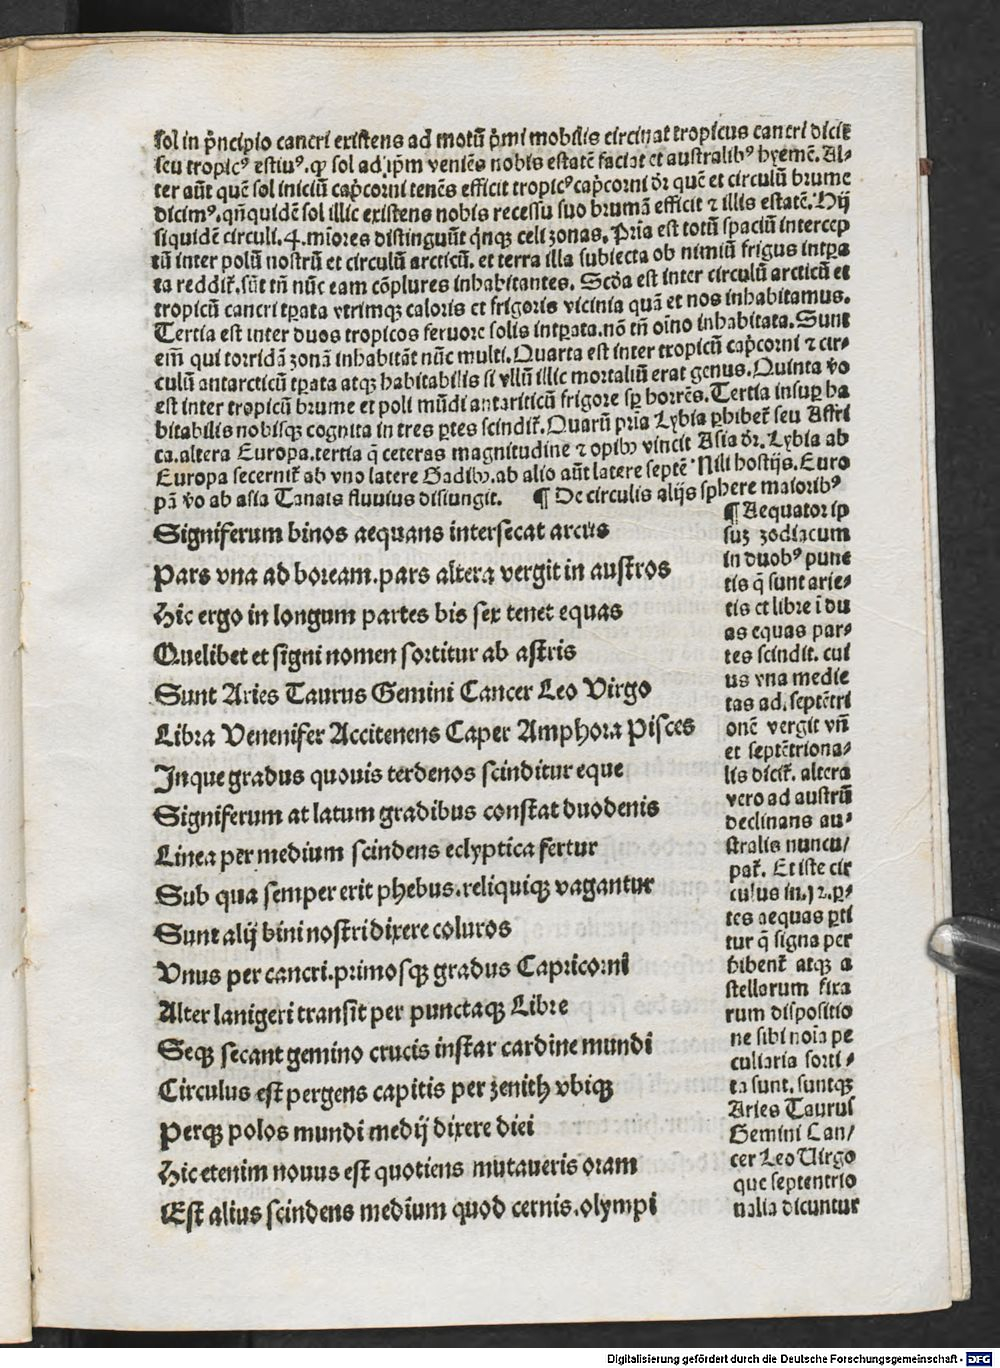 sol in p̄ncipio cancri existens ad motū p̄mi mobilis circinat tropicus cancri dicit̄
seu tropicꝰ estiuꝰ. qꝫ sol ad ip̄m veniēs nobis estatē faciat et australibꝰ hyemē. Al⸗
ter aūt quē sol iniciū cap̄corni tenēs efficit tropicꝰ cap̄corni dr̄ quē et circulū brume
dicimꝰ. qn̄quidē sol illic existens nobis recessu suo brumā efficit ⁊ illis estatē. Hij
siquidē circuli .4. mīores distinguūt qn̄qꝫ celi zonas. Prīa est totū spaciū intercep
tū inter polū nostrū et circulū arcticū. et terra illa subiecta ob nimiū frigus intꝑa
ta reddit̄. sūt tn̄ nūc eam cōplures inhabitantes. Scd̄a est inter circulū arcticū et
tropicū cancri tꝑata vtrimqꝫ caloris et frigoris vicinia quā et nos inhabitamus.
Tertia est inter duos tropicos feruore solis intꝑata. nō tn̄ oīno inhabitata. Sunt
eīm qui torridā zonā inhabitāt nūc multi. Quarta est inter tropicū cap̄corni ⁊ cir⸗
culū antarcticū tꝑata atqꝫ habitabilis si vllū illic mortaliū erat genus. Quinta v̄o
est inter tropicū brume et poli mūdi antarīticū frigore sꝑ horrēs. Tertia insuꝑ ha
bitabilis nobisqꝫ cognita in tres ꝑtes scindit̄. Quarū prīa Lybia ꝑhibet̄ seu Affri
ca. altera Europa. tertia q̄ ceteras magnitudine ⁊ opibꝫ vincit Asia dr̄. Lybia ab
Europa secernit̄ ab vno latere Gadibꝫ. ab alio aūt latere septē Nili hostijs. Euro
pā v̄o ab asia Tanais fluuius disiungit. ¶ De circulis alijs sphere maioribꝰ
Signiferum binos aequans intersecat arcus
Pars vna ad boream. pars altera vergit in austros
Hic ergo in longum partes bis sex tenet equas
Quelibet et signi nomen sortitur ab astris
Sunt Aries Taurus Gemini Cancer Leo Virgo
Libra Venenifer Accitenens Caper Amphora Pisces
Inque gradus quouis terdenos scinditur eque
Signiferum at latum gradibus constat duodenis
Linea per medium scindens eclyptica fertur
Sub qua semper erit phebus. reliquiqꝫ vagantur
Sunt alij bini nostri dixere coluros
Vnus per cancri. primosqꝫ gradus Capricorni
Alter lanigeri transit per punctaqꝫ Libre
Seqꝫ secant gemino crucis instar cardine mundi
Circulus est pergens capitis per zenith vbiqꝫ
Perqꝫ polos mundi medij dixere diei
Hic etenim nouus est quotiens mutaueris oram
Est alius scindens medium quod cernis. olympi
¶ Aequator ip
suꝫ zodiacum
in duobꝰ punc
tis q̄ sunt arie⸗
tis et libre ī du
as equas par⸗
tes scindit. cui
us vna medie
tas ad. septētri
onē vergit vn̄
et septētriona⸗
lis dicit̄. altera
vero ad austrū
declinans au⸗
stralis nuncu/
pat̄. Et iste cir
culus in .12. ꝑ⸗
tes aequas ꝑti
tur q̄ signa per
hibent̄ atqꝫ a
stellarum fixa
rum dispositio
ne sibi noīa pe
culiaria sorti⸗
ta sunt. suntqꝫ
Aries Taurus
Gemini Can/
cer Leo Virgo
que septentrio
nalia dicuntur
Digitalisierung gefördert durch die Deutsche Forschungsgemeinschaft - DFG